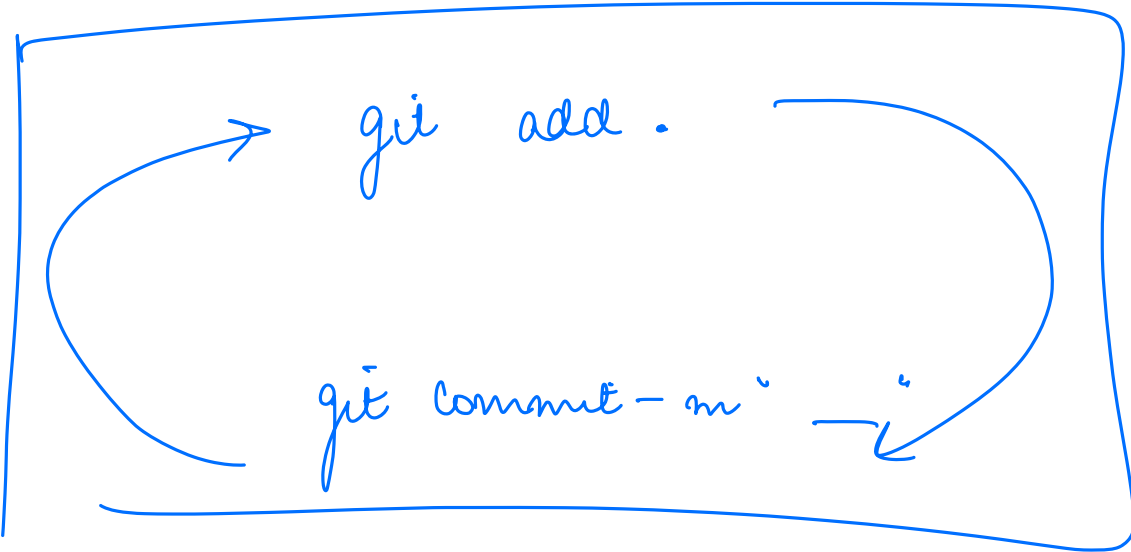 git add .
git commit - m " __ "